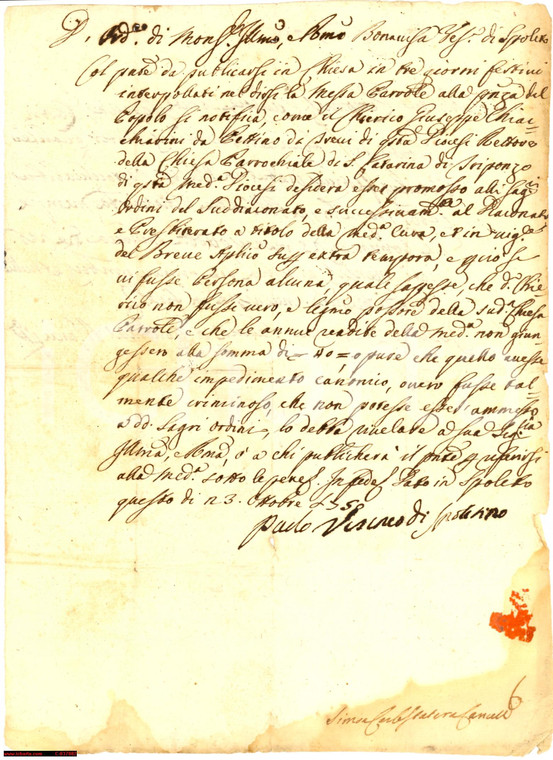 D'Ord.e di Mons.r Illmo, e Rmo Bonavisa Vesc.o di Spoleto
Col pnte da publicarsi in Chiesa in tre giorni festivi
interpollati nel dirsi la Messa Parrōle alla pnza del
Popolo si notifica, come il Chierico Giuseppe Chiac=
chiarini da Cettino da Trevi di qsta Diocesi Rettore
della Chiesa Parrochiale di S. Catarina di Triponzo
di qsta med.a Diocesi desidera esser promosso alli Sagri
Ordini del Suddiaconato, e successivam.te al Diaconato
e Presbiterato a titolo della med.a Cura, et in vigore
del Breve Aplico sup extra tempora, e perciò se
vi fusse Persona alcuna, quale sapesse, che d.o Chie=
rico non fusse vero, e legmo possore della sud.a Chiesa
Parrōle, e che le annue rendite della med.a non giun=
gessero alla somma di = 40 = o pure che questo avesse
qualche impedimento canonico, overo fusse tal=
mente criminoso, che non potesse esser ammesso
a dd. Sagri ordini, lo debba rivelare a Sua Sig.ria
Illma, e Rma, o a chi publicherà il pnte p referirsi
alla med.a sotto le pene &. In fede & Dato in Spoleto
questo dì 23. Ottobre
Paolo di Spoletino
Simon Cancell.e